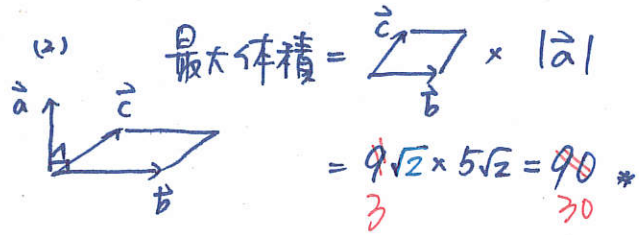 (2) 最大体積 = c⃗ b⃗ × |a⃗|
a⃗ c⃗ b⃗
= 9√2 × 5√2 = 90 *
3 30